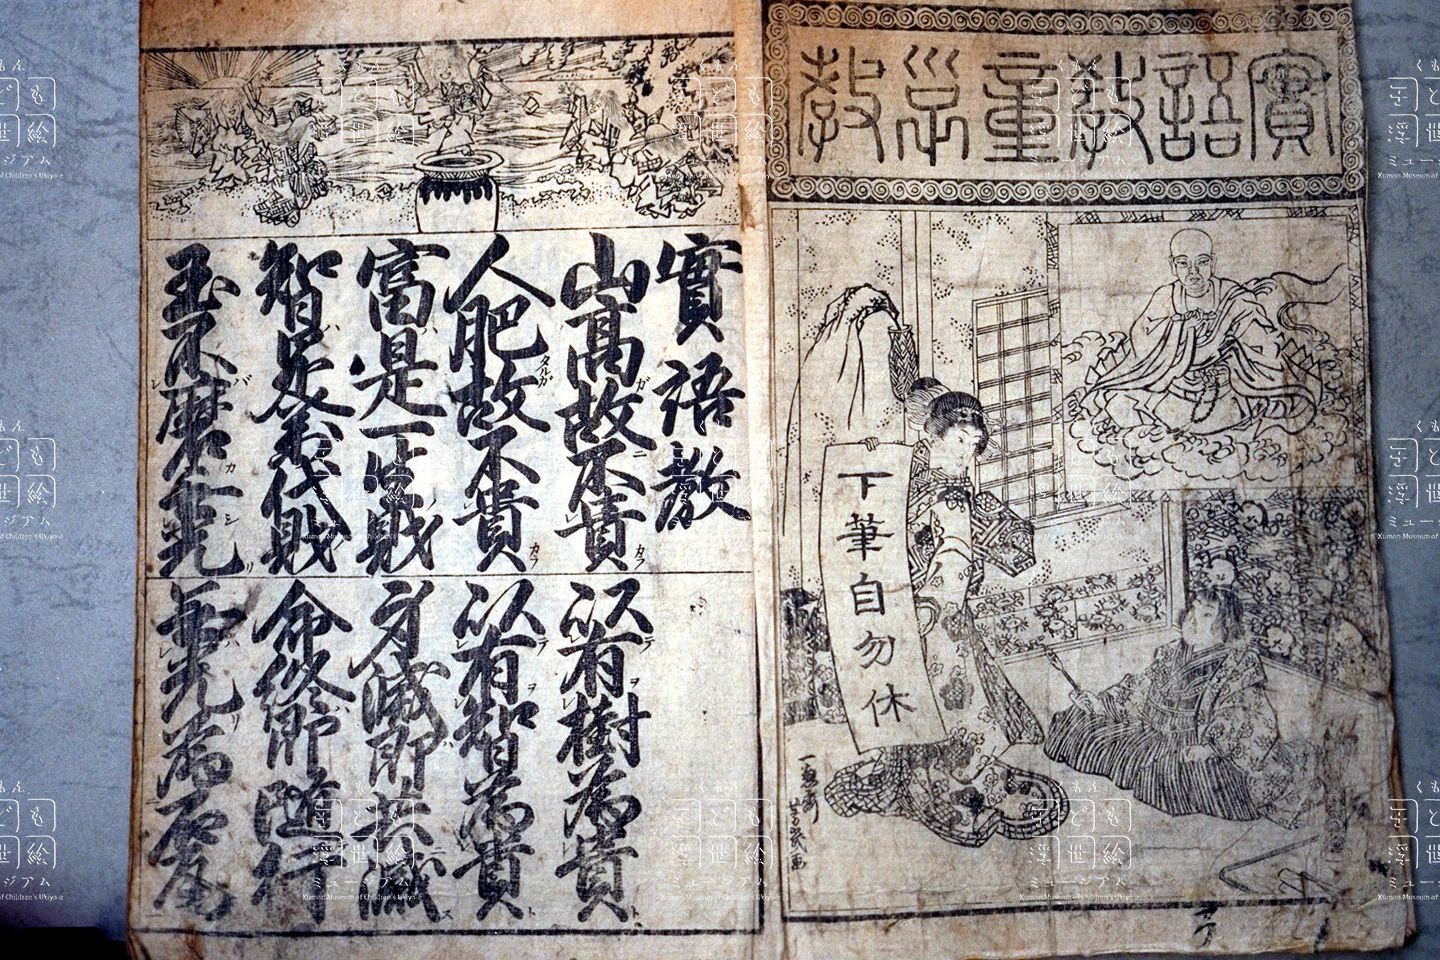 實語教童子教
下筆自勿休
實語教
山高故不貴 以有樹為貴
人肥故不貴 以有智為貴
富是一生財 身滅即共滅
智是萬代財 命終即隨行
玉不磨無光 無光為石瓦
くもん
子ども
浮世絵
ミュージアム
Kumon Museum of Children's Ukiyo-e